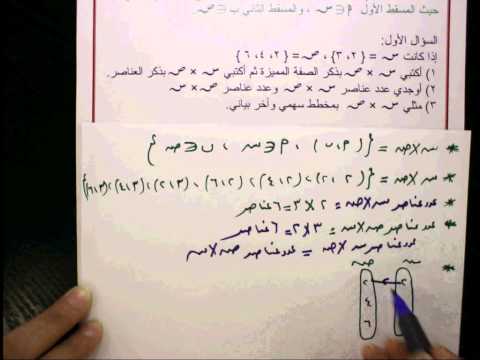 حيث المسقط الأول م∋س ، والمسقط الثاني ب∋ص
السؤال الأول:
إذا كانت س = {٢، ٣} ، ص = {٢، ٤، ٦}
١) أكتبي س × ص بذكر الصفة المميزة ثم أكتبي س × ص بذكر العناصر.
٢) أوجدي عدد عناصر س × ص وعدد عناصر ص × س
٣) مثلي س × ص بمخطط سهمي وآخر بياني.
* س × ص = {(م، ب) ، م ∋ س ، ب ∋ ص}
* س × ص = {(٢، ٢)، (٢، ٤)، (٢، ٦)، (٣، ٢)، (٣، ٤)، (٣، ٦)}
* عدد عناصر س × ص = ٢ × ٣ = ٦ عناصر
* عدد عناصر ص × س = ٣ × ٢ = ٦ عناصر
عدد عناصر س × ص = عدد عناصر ص × س
* س ص
٢ ٢
٤
٦